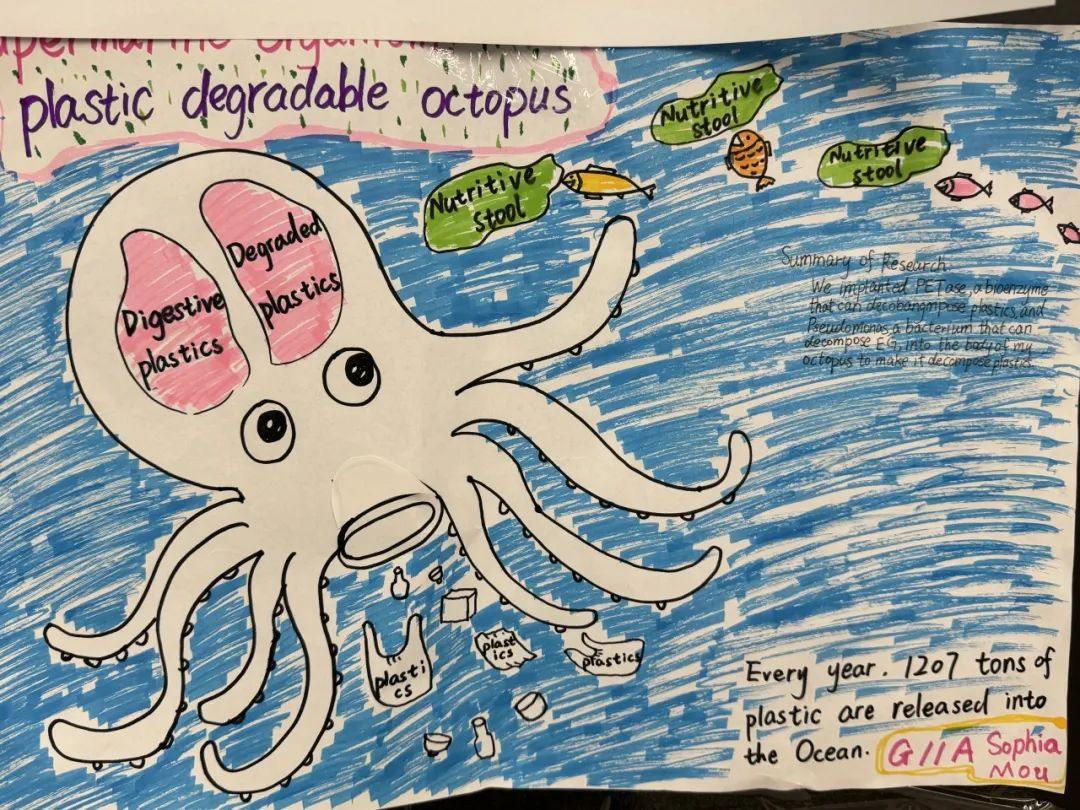 plastic degradable octopus
Nutritive
stool
Nutritive
stool
Nutritive
stool
Degraded
plastics
Digestive
plastics
Summary of Research:
We implanted PETase, a bioenzyme
that can decobangmpose plastics, and
Pseudomonas, a bacterium that can
decompose EG, into the body of my
octopus to make it decompose plastics.
plasti
cs
plast
ics
plastics
Every year. 1207 tons of
plastic are released into
the Ocean.
G11A Sophia
Mou